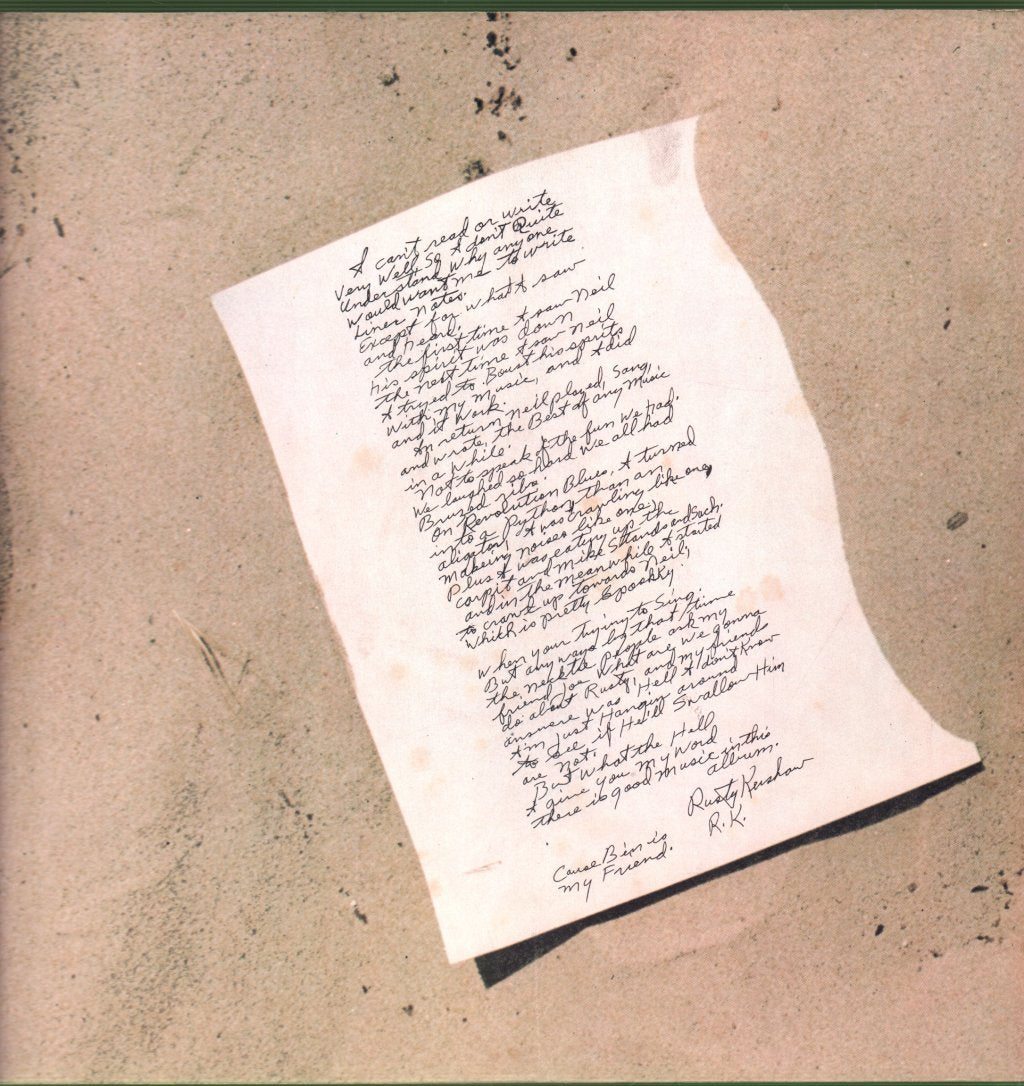 I can't read or write
Very Well, So I don't Quite
Understand Why anyone
Would want me to write
Liner Notes.
Except for what I saw
and heard.
the first time I saw Neil
his spirit was down
the next time I saw Neil
I tryed to Boust his spirits
With my Music, and I did
and it Work.
In return Neil played, Sang,
and wrote, the Best of any Music
in a while.
Not to speak of the fun We had.
We laughed so hard We all had
Bruzed ribs.
On Revolution Blues, I turned
into a Python, than an
aligator, I was crawling like one,
makeing noises like one,
Plus I was eating up the
carpit and Mike Stands and Such.
and in the meanwhile I started
to crawl up towards Neil,
Which is pretty Spookky.
When your Trying to Sing.
But any ways by that time
the necktie People ask my
friend Joe What are We gonna
do about Rusty, and my friends
answere was Hell I don't Know
I'm Just Hangin around
to see if He'll Swallow Him
are Not.
But What the Hell
I give you My Word
there is good Music in this
album.
Rusty Kershaw
R.K.
Cause Ben is
my Friend.